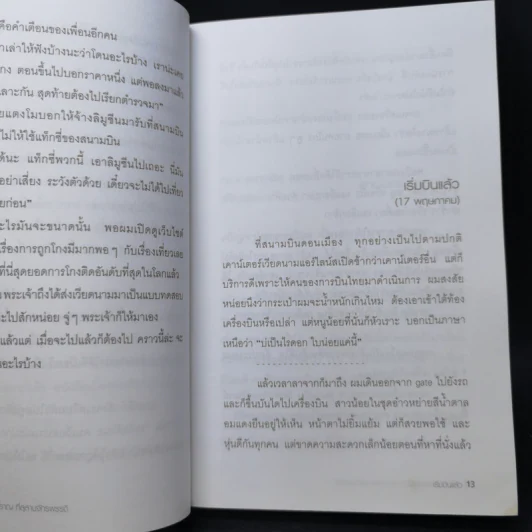 คือคำเตือนของเพื่อนอีกคน
าเล่าให้ฟังบ้างนะว่าโดนอะไรบ้าง เราน่ะเคย
กง ตอนขึ้นไปบอกราคาหนึ่ง แต่พอลงมาแล้ว
ลาะกัน สุดท้ายต้องไปเรียกตำรวจมา”
ยแดงโมบอกให้จ้างลิมูซีนมารับที่สนามบิน
ไม่ให้ใช้แท็กซี่ของสนามบิน
ได้นะ แท็กซี่พวกนี้ เอาลิมูซีนไปเถอะ นี่มัน
อย่าเสี่ยง ระวังตัวด้วย เดี๋ยวจะไม่ได้ไปเที่ยว
ยก่อน”
ะไรมันจะขนาดนั้น พอผมเปิดดูเว็บไซต์
เรื่องการถูกโกงมีมากพอๆ กับเรื่องเที่ยวเลย
ที่นี่สุดยอดการโกงติดอันดับที่สุดในโลกแล้ว
พระเจ้าถึงได้ส่งเวียดนามมาเป็นแบบทดสอบ
ะไปสักหน่อย จู่ๆ พระเจ้าก็ให้มาเอง
แล้วแต่ เมื่อจะไปแล้วก็ต้องไป คราวนี้ล่ะ จะ
นอะไรบ้าง
เริ่มบินแล้ว
(17 พฤษภาคม)
ที่สนามบินดอนเมือง ทุกอย่างเป็นไปตามปกติ
เคาน์เตอร์เวียดนามแอร์ไลน์สเปิดช้ากว่าเคาน์เตอร์อื่น แต่ก็
บริการดีเพราะให้คนของการบินไทยมาดำเนินการ ผมสงสัย
หน่อยนึงว่ากระเป๋าผมจะน้ำหนักเกินไหม ต้องเอาเข้าใต้ท้อง
เครื่องบินหรือเปล่า แต่หนูน้อยที่นั่นก็หัวเราะ บอกเป็นภาษา
เหนือว่า “บ่เป็นไรดอก ใบน่อยแค่นี้”
แล้วเวลาลาจากก็มาถึง ผมเดินออกจาก gate ไปยังรถ
และก็ขึ้นบันไดไปเครื่องบิน สาวน้อยในชุดอ๋าวหย่ายสีน้ำตาล
อมแดงยืนอยู่ให้เห็น หน้าตาไม่ยิ้มแย้ม แต่ก็สวยพอใช้ และ
หุ่นดีกันทุกคน แต่ขาดความสะดวกเล็กน้อยตอนที่หาที่นั่งแล้ว
เริ่มบินแล้ว 13